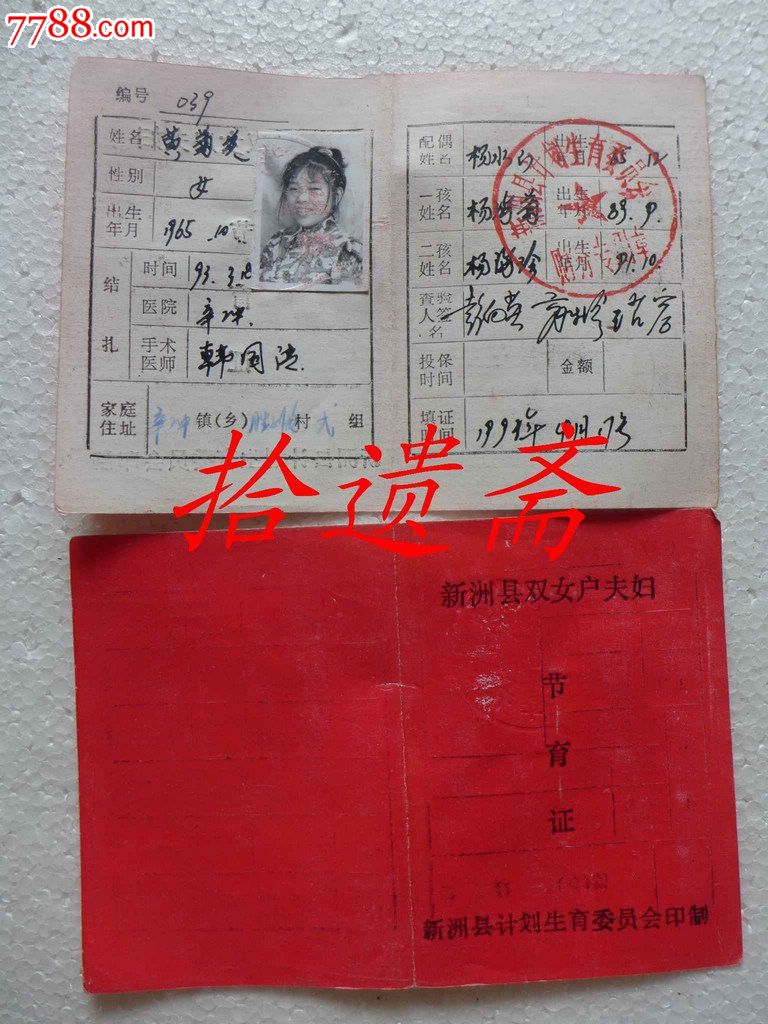 7788.com
编号 039
姓名 黄菊
性别 女
出生年月 1965.10
结扎
时间 93.3.
医院 辛冲.
手术医师 韩国
家庭住址 辛冲 镇(乡) 村 组
配偶姓名 杨 出生年月 65.12
一孩姓名 杨 出生年月 89.9.
二孩姓名 杨 珍 出生年月 91.10.
查验人签名 彭
投保时间 金额
填证时间 199 年 月 日
计划生育委员会
拾遗斋
新洲县双女户夫妇
节
育
证
新洲县计划生育委员会印制